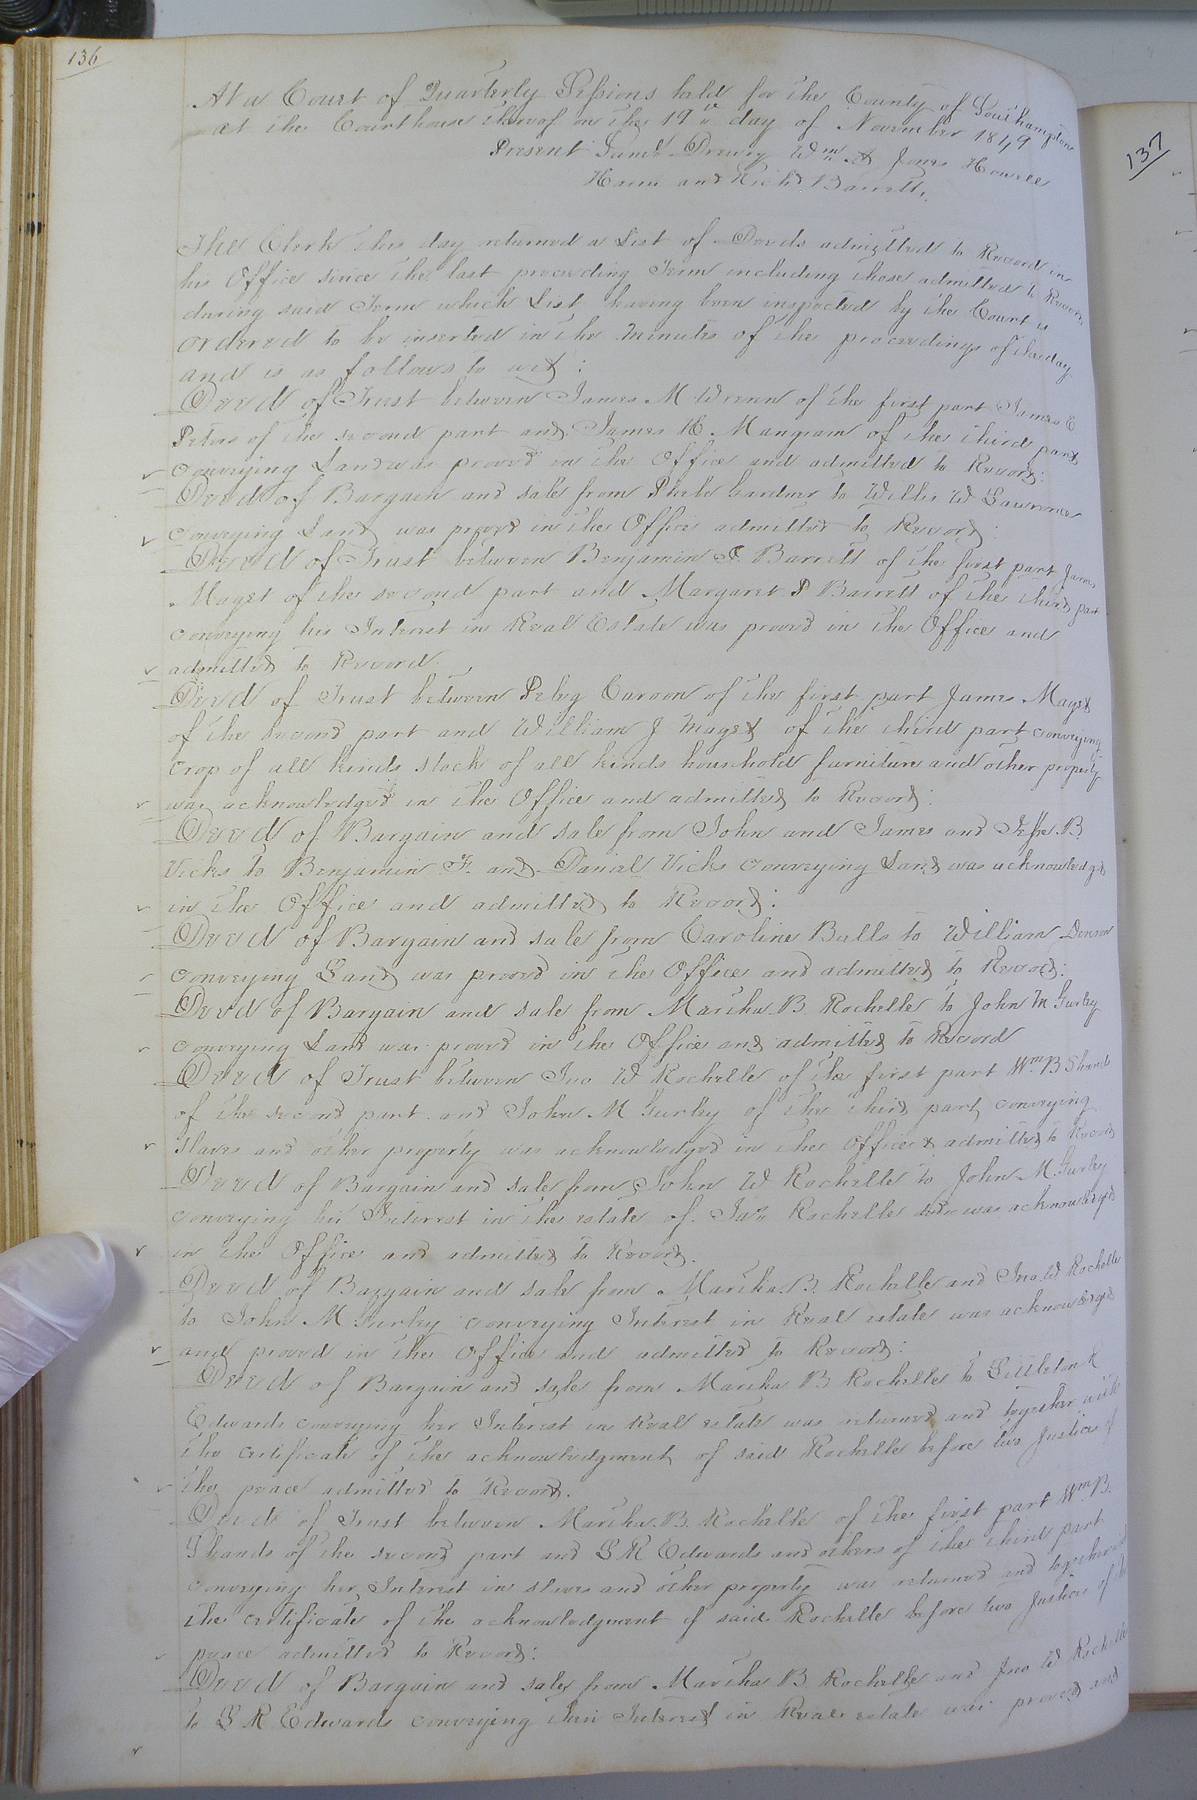 136
At a Court of Quarterly Sessions held for the County of Southampton
at the Courthouse thereof on the 19th day of November 1849
Present Saml Drewry Wm A Jones Howell
Harris and Richd Barrett.
The Clerk this day returned a List of Deeds admitted to Record in
his Office since the last preceeding Term including those admitted to Record
during said Term which List having been inspected by the Court is
ordered to be inserted in the minutes of the proceedings of the day
and is as follows to wit:
Deed of Trust between James M Wrenn of the first part James E
Peters of the second part and James H. Mangram of the third part
conveying Land was proved in the Office and admitted to Record:
Deed of Bargain and sale from Gardner to Willis W Lawrence
conveying Land was proved in the Office admitted to Record:
Deed of Trust between Benjamin F. Barrett of the first part James
Maget of the second part and Margaret P Barrett of the third part
conveying his Interest in Real Estate was proved in the Office and
admitted to Record.
Deed of Trust between Peleg Carson of the first part James Maget
of the second part and William J Maget of the third part conveying
crop of all kinds stock of all kinds household furniture and other property
was acknowledged in the Office and admitted to Record:
Deed of Bargain and sale from John and James and Jesse B.
Vicks to Benjamin F. and Danial Vicks conveying Land was acknowledged
in the Office and admitted to Record:
Deed of Bargain and sale from Caroline Bulls to William Denson
conveying Land was proved in the Office and admitted to Record:
Deed of Bargain and sale from Martha B. Rochelle to John M Gurley
conveying Land was proved in the Office and admitted to Record
Deed of Trust between Jno W Rochelle of the first part Wm B Shands
of the second part and John M Gurley of the third part conveying
slaves and other property was acknowledged in the Office & admitted to Record
Deed of Bargain and sale from John W Rochelle to John M. Gurley
conveying his Interest in the estate of Jas Rochelle was acknowledged
in the Office and admitted to Record.
Deed of Bargain and sale from Martha B. Rochelle and Jno W Rochelle
to John M Gurley conveying Interest in Real estate was acknowledged
and proved in the Office and admitted to Record:
Deed of Bargain and sale from Martha B Rochelle to Littleton R
Edwards conveying her Interest in Real estate was returned and together with
the certificate of the acknowledgment of said Rochelle before two Justices of
the peace admitted to Record.
Deed of Trust between Martha B. Rochelle of the first part Wm B.
Shands of the second part and L R Edwards and others of the third part
conveying her Interest in slaves and other property was returned and together with
the certificate of the acknowledgment of said Rochelle before two Justices of the
peace admitted to Record:
Deed of Bargain and sale from Martha B Rochelle and Jno W Rochelle
to L R Edwards conveying their Interest in Real estate was proved and
137